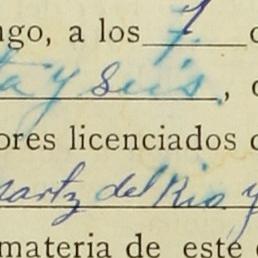 ngo, a los 7
ta y seis,
ores licenciados
sartz del Rio y
materia de este